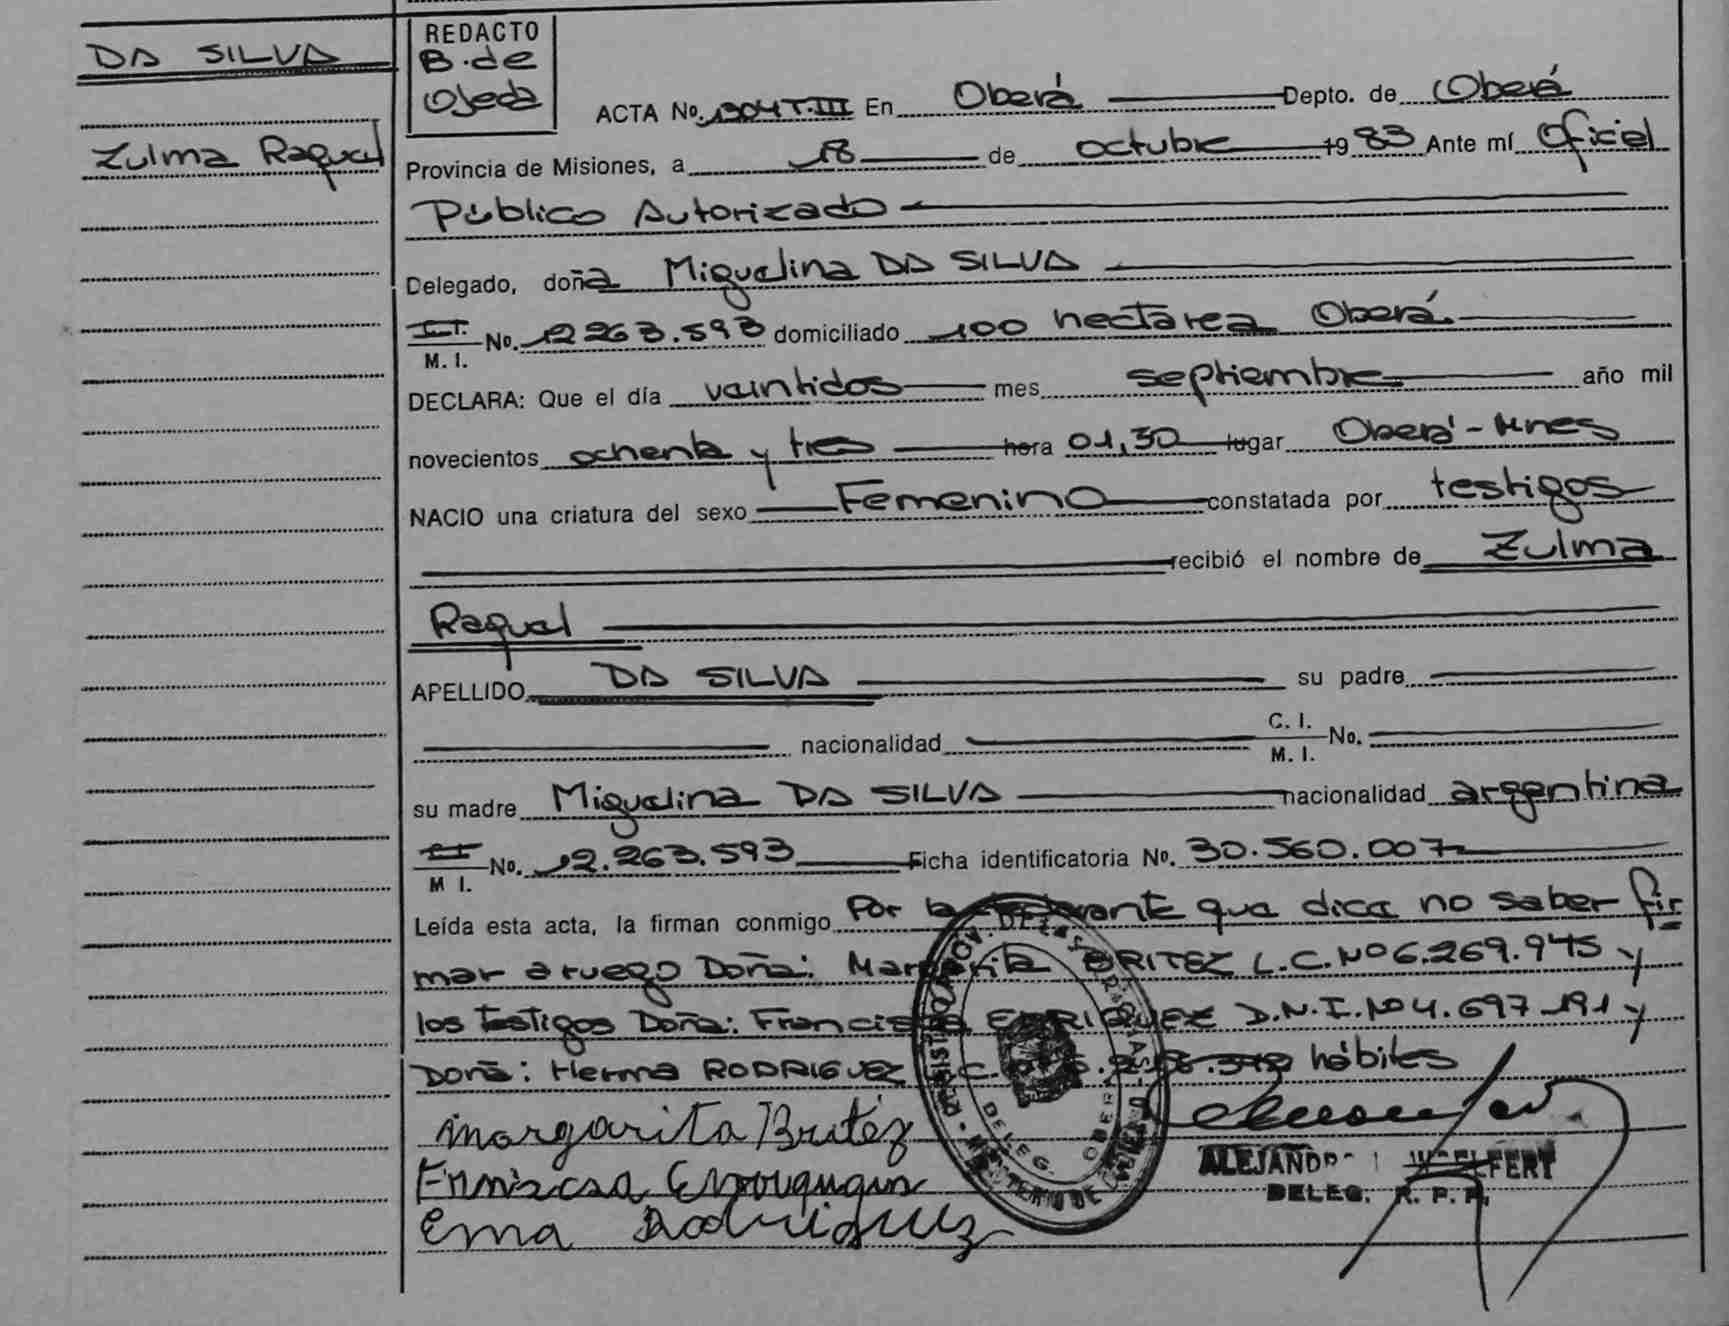 DA SILVA
Zulma Raquel
REDACTO
B. de
Ojeda
ACTA No. 1304 T.III En Oberá Depto. de Oberá
Provincia de Misiones, a 18 de octubre 1983 Ante mí Oficial
Público Autorizado
Delegado, doña Miguelina DA SILVA
M. I. No. 12.263.593 domiciliado 100 hectarea Oberá
DECLARA: Que el día veintidos mes septiembre año mil
novecientos ochenta y tres hora 01,30 lugar Oberá - Mnes
NACIO una criatura del sexo Femenino constatada por testigos
recibió el nombre de Zulma
Raquel
APELLIDO DA SILVA su padre
nacionalidad C. I. M. I. No.
su madre Miguelina DA SILVA nacionalidad argentina
M I. No. 12.263.593 Ficha identificatoria No. 30.560.007
Leída esta acta, la firman conmigo Por la que dice no saber fir
mar a ruego Doña: Margarita BRITEZ L.C.Nº 6.269.945 y
los testigos Doña: Francisca ENRIQUEZ D.N.I.Nº 4.697.191 y
Doña: Herma RODRIGUEZ hábiles
Margarita Britéz
Ema Rodriguez
DELEG. OBERA
ALEJANDRO WOELFERT
DELEG. R. P. P.